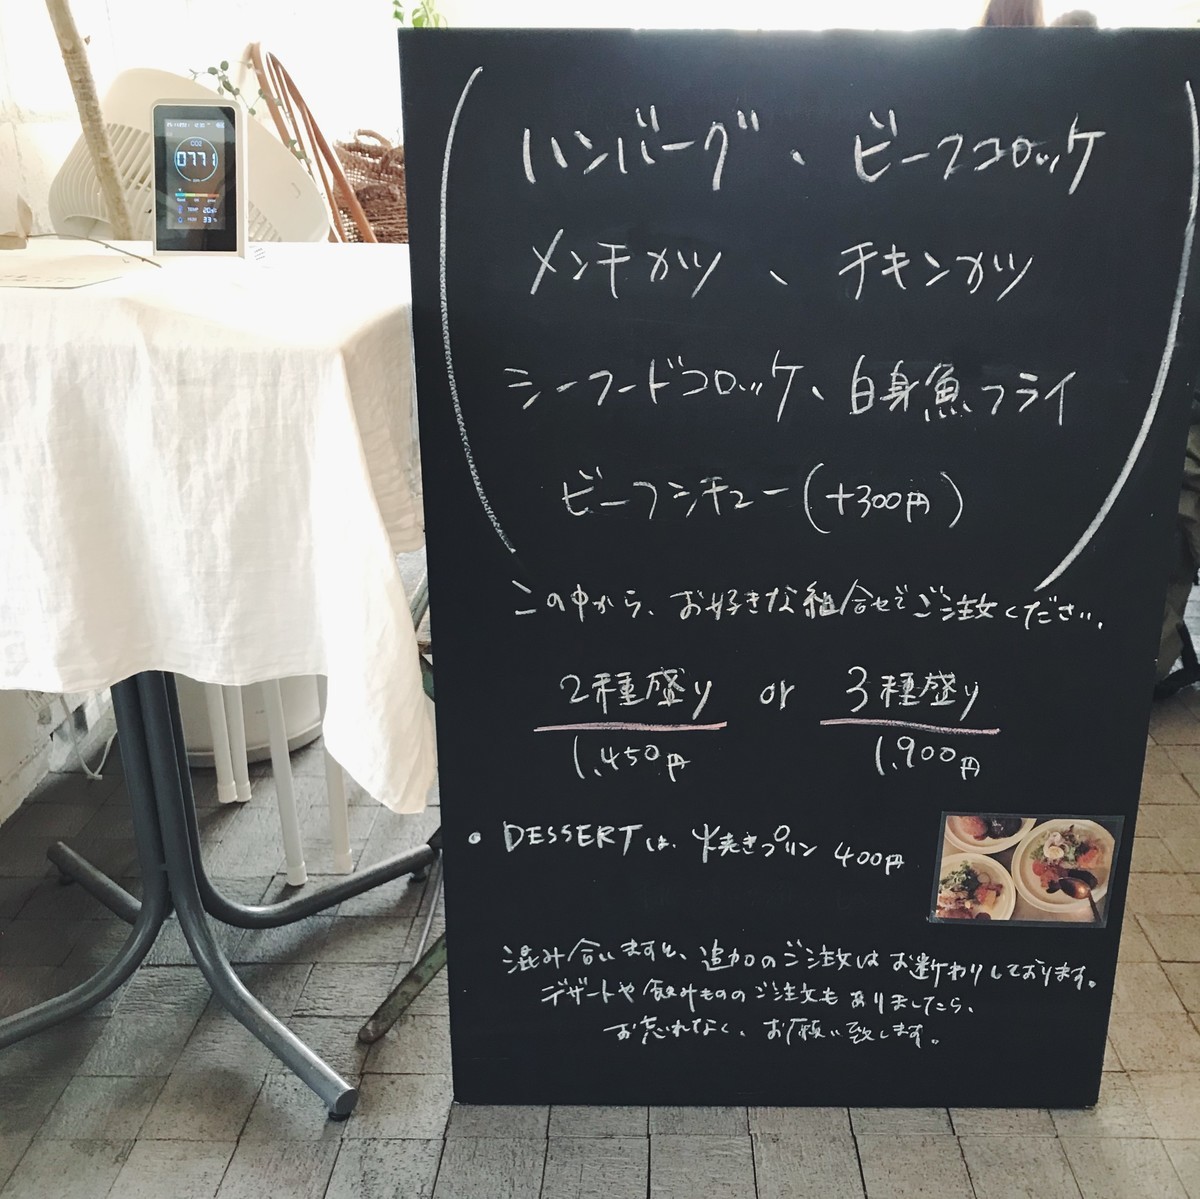 CO2
0771
ハンバーグ、ビーフコロッケ
メンチカツ、チキンカツ
シーフードコロッケ、白身魚フライ
ビーフシチュー(+300円)
この中から、お好きな組合せでご注文ください。
2種盛り or 3種盛り
1,450円 1,900円
• DESSERTは、焼きプリン 400円
混み合いますと、追加のご注文はお断わりしております。
デザートや飲みもののご注文もありましたら、
お忘れなく、お願い致します。